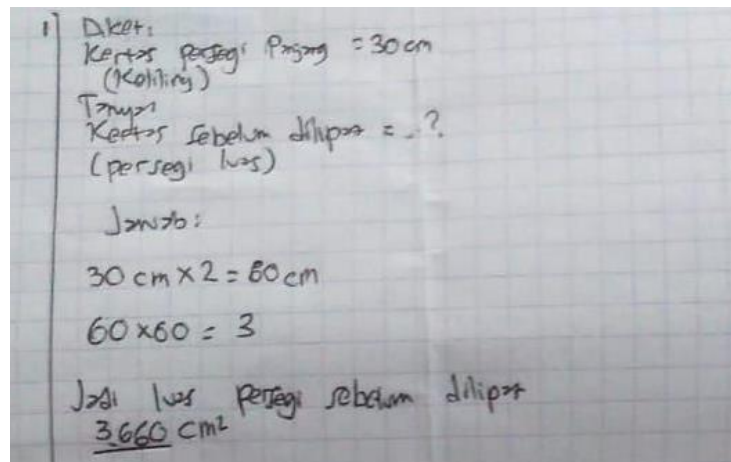 1] Diket:
Kertas persegi Panjang = 30 cm
(Keliling)
Tanya
Kertas sebelum dilipat = ..?
(persegi luas)
Jawab:
30 cm x 2 = 60 cm
60 x 60 = 3
Jadi luas persegi sebelum dilipat
3660 cm²